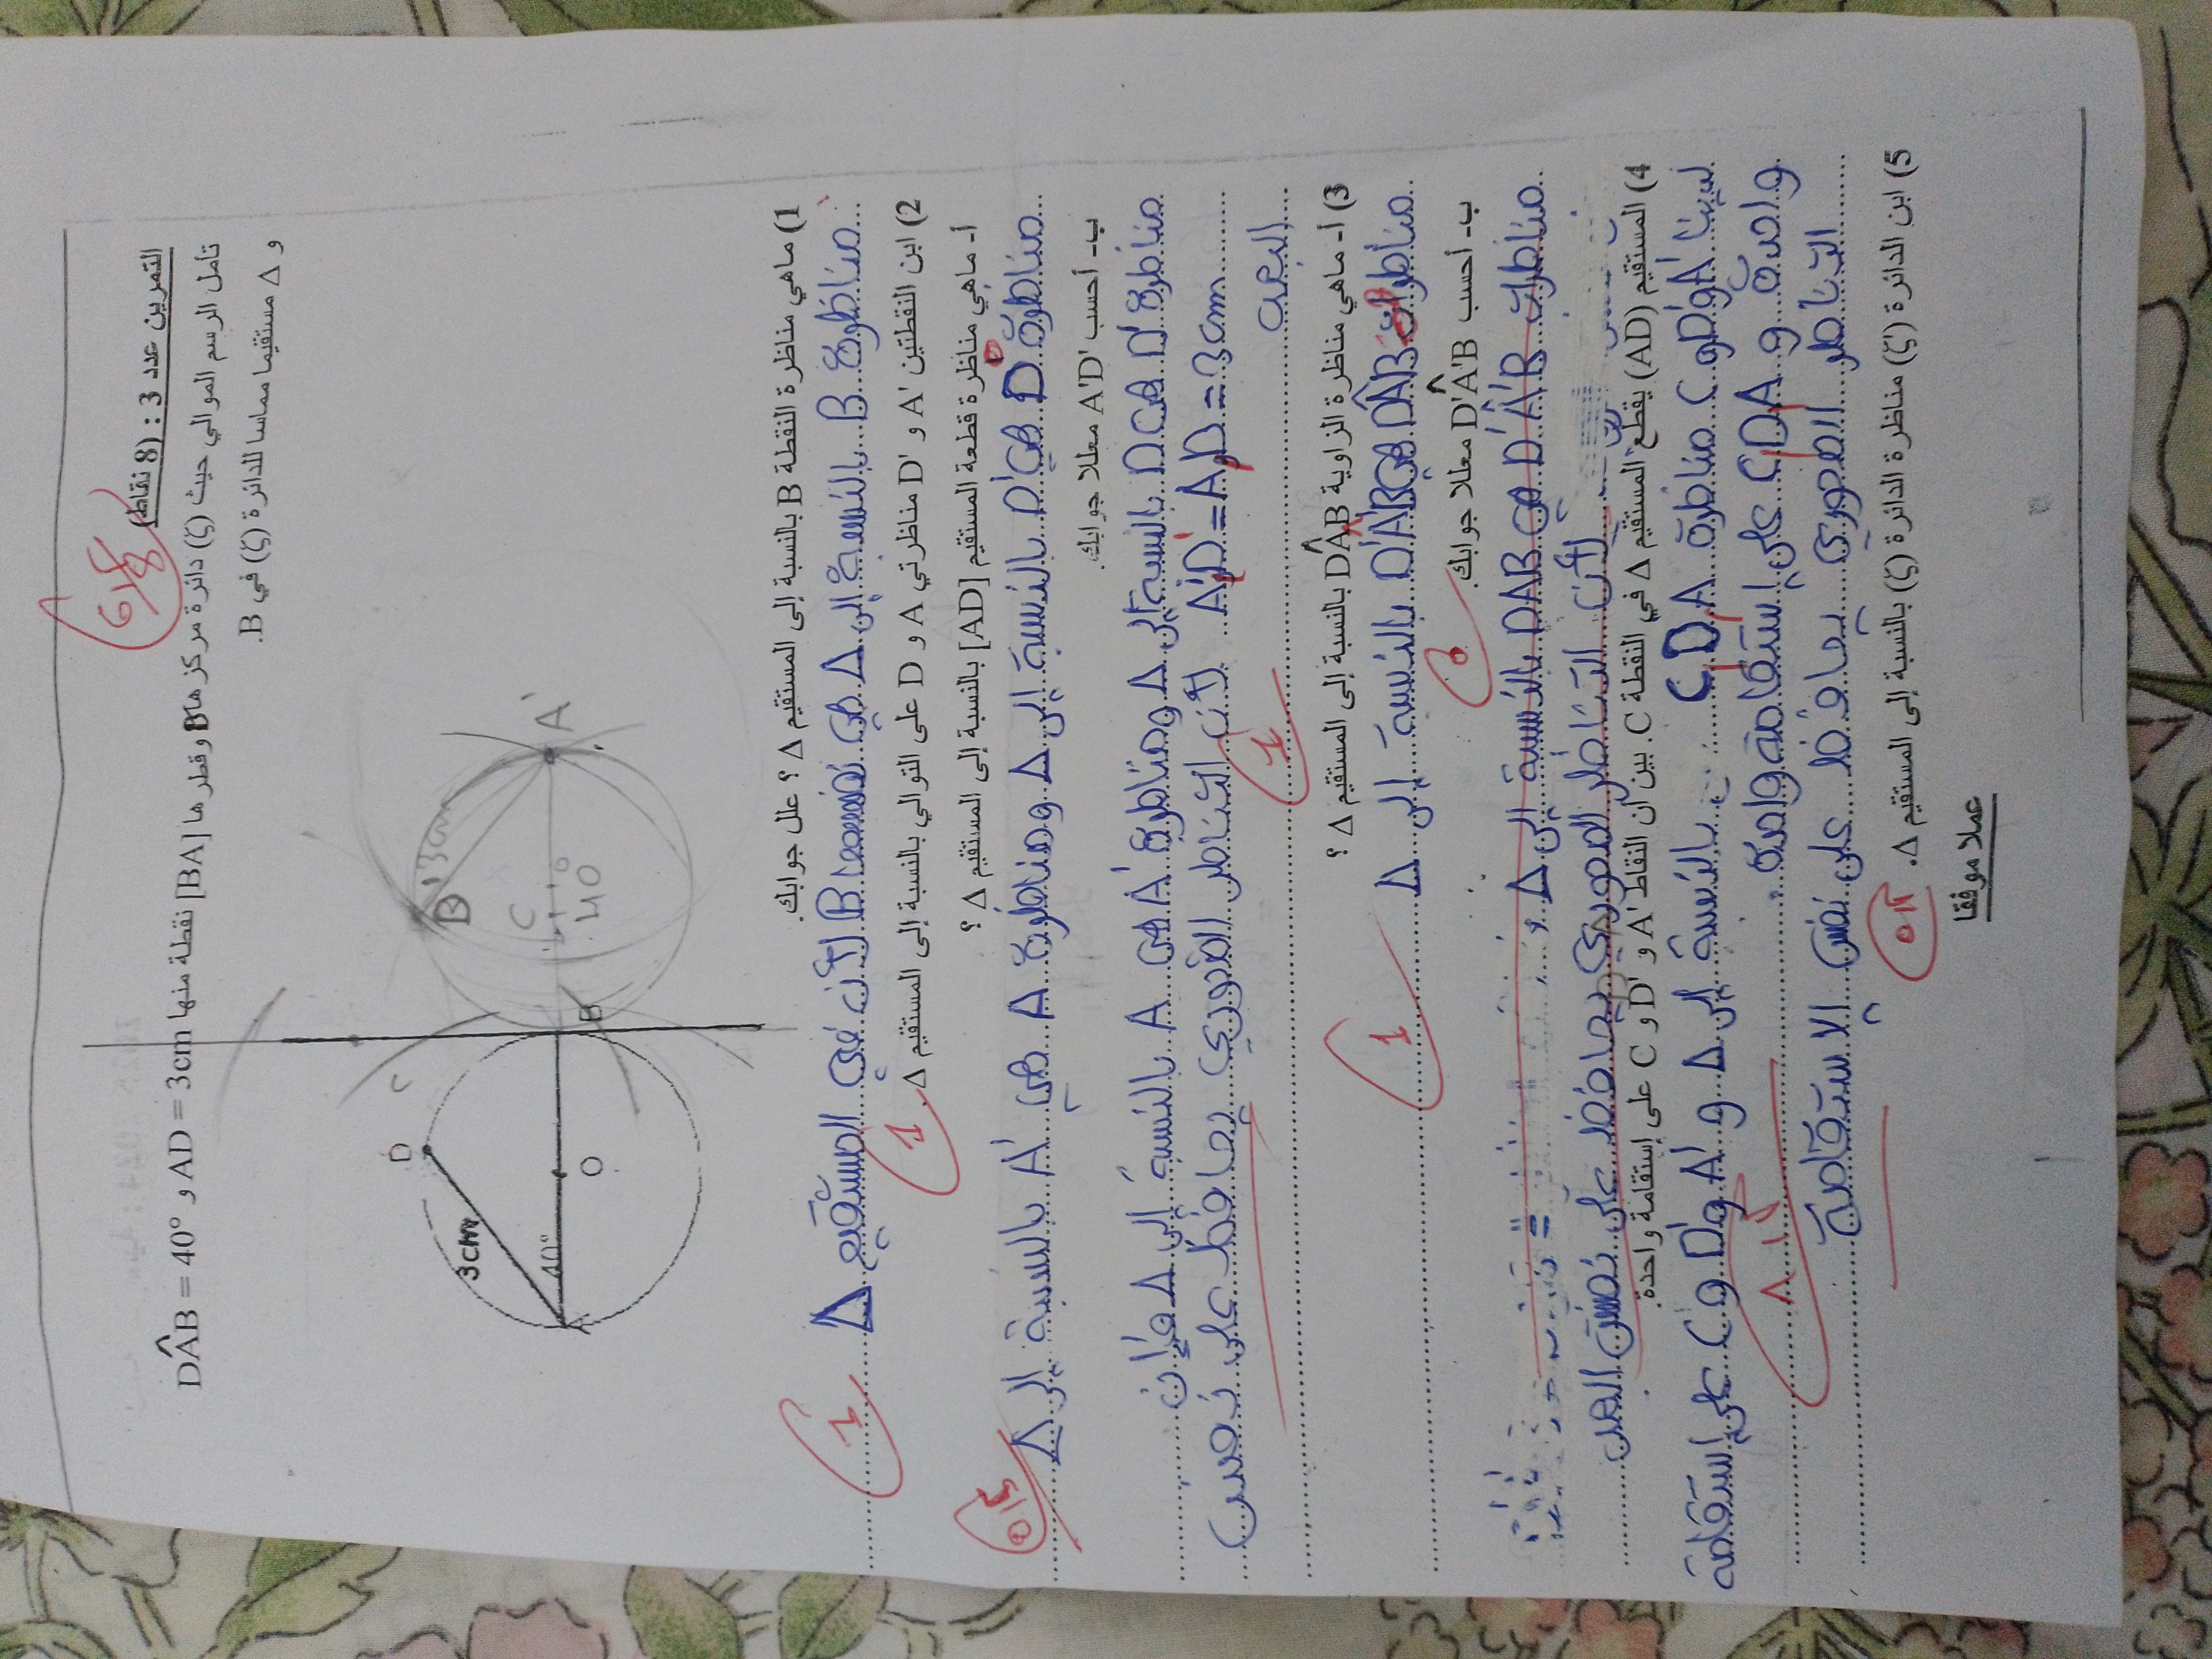 التمرين عدد 3 : (8 نقاط)
6/8
تأمل الرسم الموالي حيث (ζ) دائرة مركزها O وقطرها [BA] نقطة منها AD = 3cm و DÂB = 40°
و Δ مستقيما مماسا للدائرة (ζ) في B.
D
C
3cm
40°
A
O
B
D'
3cm
C
40
A'
1) ماهي مناظرة النقطة B بالنسبة إلى المستقيم Δ ؟ علل جوابك.
مناظرة B بالنسبة إلى Δ هي نفسها B لأن في المستقيم Δ
1
2) ابن النقطتين A' و D' مناظرتي A و D على التوالي بالنسبة إلى المستقيم Δ.
1
أ- ماهي مناظرة قطعة المستقيم [AD] بالنسبة إلى المستقيم Δ ؟
مناظرة D هي D' بالنسبة إلى Δ ومناظرة A هي A' بالنسبة إلى Δ
ب- أحسب A'D' معللا جوابك.
مناظرة D' هي D بالنسبة إلى Δ ومناظرة A' هي A بالنسبة إلى Δ فإن
A'D' = AD = 3cm لأن التناظر المحوري يحافظ على نفس
البعد
1
3) أ- ماهي مناظرة الزاوية DÂB بالنسبة إلى المستقيم Δ ؟
مناظرة DÂB هي D'A'B بالنسبة إلى Δ
1
ب- أحسب D'Â'B معللا جوابك.
0
مناظرة D'Â'B هي DAB بالنسبة إلى Δ
لأن التناظر المحوري يحافظ على نفس
4) المستقيم (AD) يقطع المستقيم Δ في النقطة C. بين أن النقاط A' و D' و C على إستقامة واحدة.
لدينا A' و D' و C مناظرة A D C بالنسبة إلى Δ و A' و D' و C على إستقامة
واحدة و A D C على إستقامة واحدة
التناظر المحوري يحافظ على نفس الاستقامة
5) ابن الدائرة (ζ') مناظرة الدائرة (ζ) بالنسبة إلى المستقيم Δ.
عملا موفقا